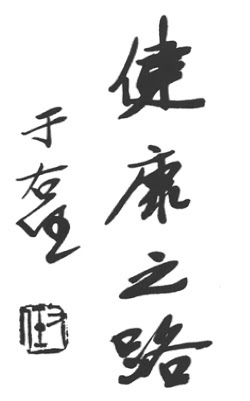 健康之路
于右任